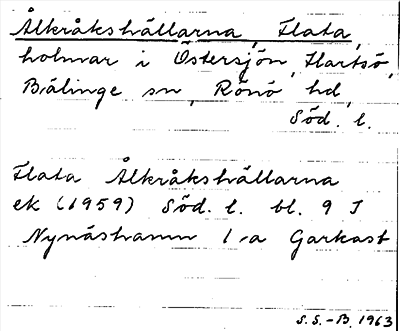 Ålkråkshällarna, Flata,
holmar i Östersjön, Hartsö,
Bälinge sn, Rönö hd,
Söd. l.
Flata Ålkråkshällarna
ek (1959) Söd. l. bl. 9 I
Nynäshamn 1-a Garkast
S.S.-B. 1963